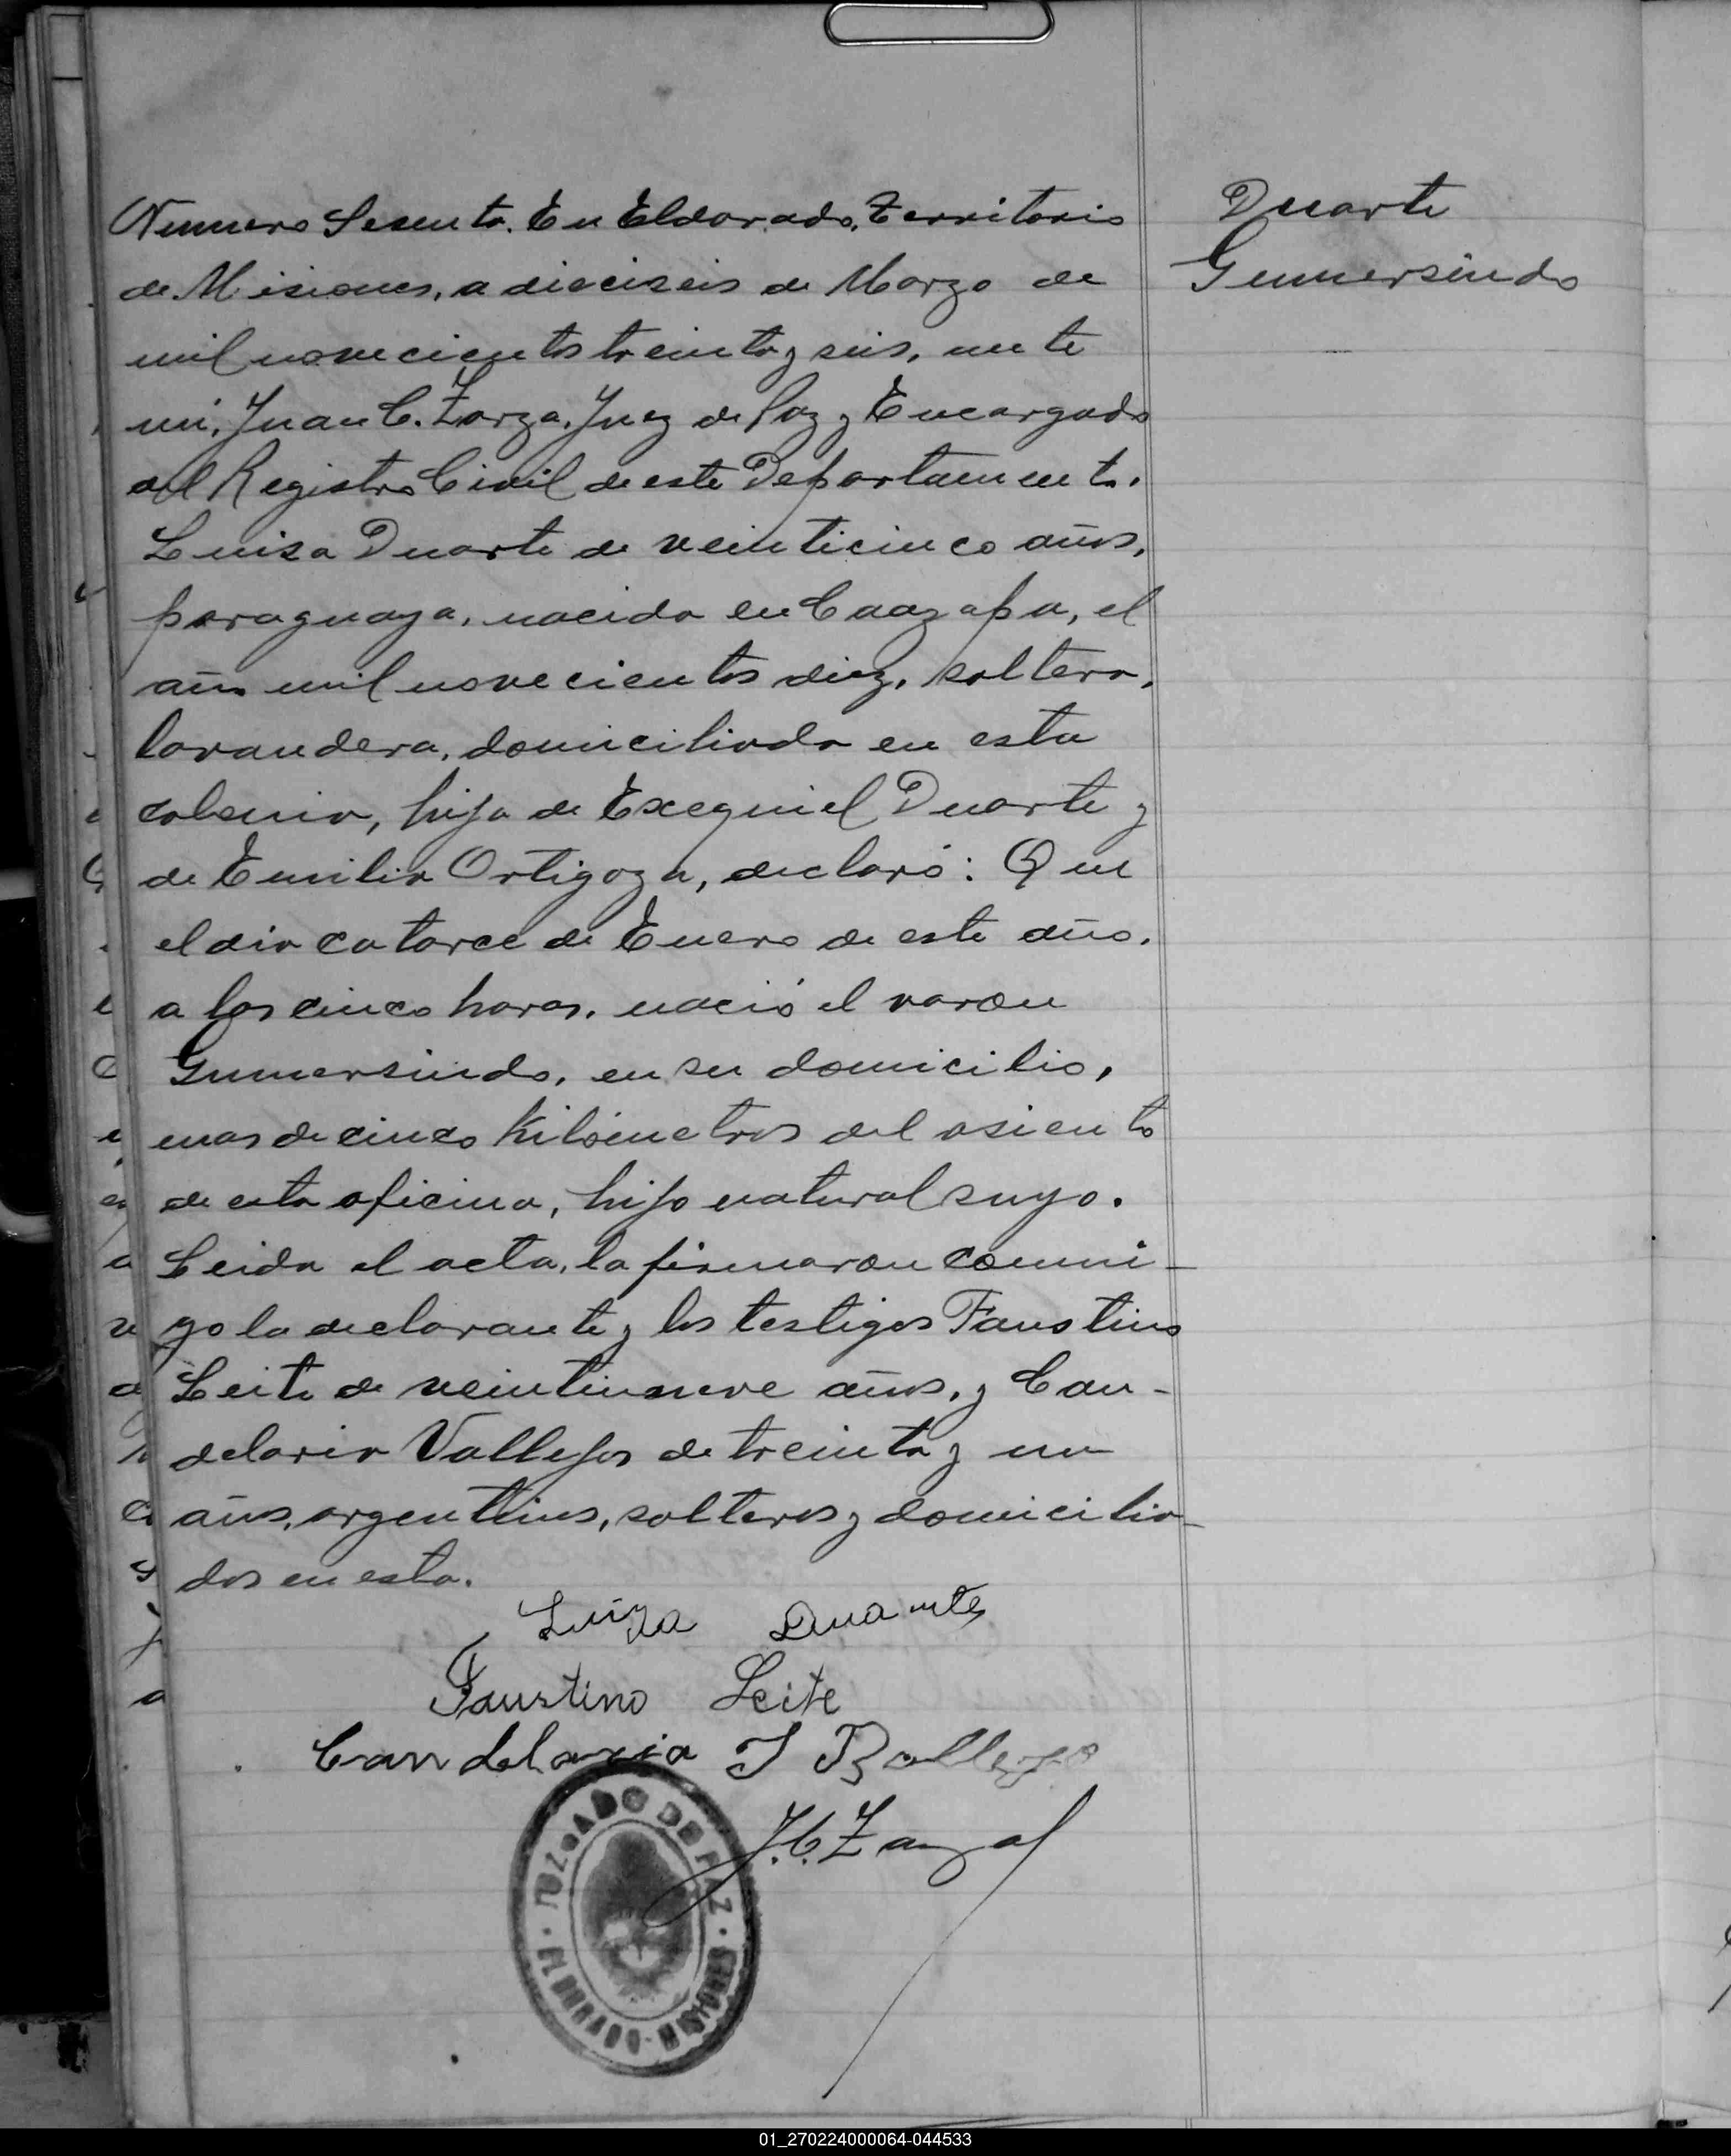 Duarte
Gumersindo
Numero Sesenta. En Eldorado, Territorio
de Misiones, a dieciseis de Marzo de
mil novecientos treinta y seis, ante
mi, Juan C. Zarza, Juez de Paz y Encargado
del Registro Civil de este Departamento,
Luisa Duarte de veinticinco años,
paraguaya, nacida en Caazapa, el
año mil novecientos diez, soltera,
lavandera, domiciliada en esta
colonia, hija de Exequiel Duarte y
de Emilia Ortigoza, declaró: Que
el dia catorce de Enero de este año,
a las cinco horas, nació el varon
Gumersindo, en su domicilio,
mas de cinco Kilómetros del asiento
de esta oficina, hijo natural suyo.
Leida el acta, la firmaron conmi-
go la declarante y los testigos Faustino
Leite de veintinueve años, y Can-
delaria Vallejos de treinta y un
años, argentinos, solteros y domicilia-
dos en esta.
Luiza Duarte
Faustino Leite
Candelaria I Ballejo
J. C. Zarza
JUZGADO DE PAZ
ELDORADO - MISIONES
01_270224000064-044533